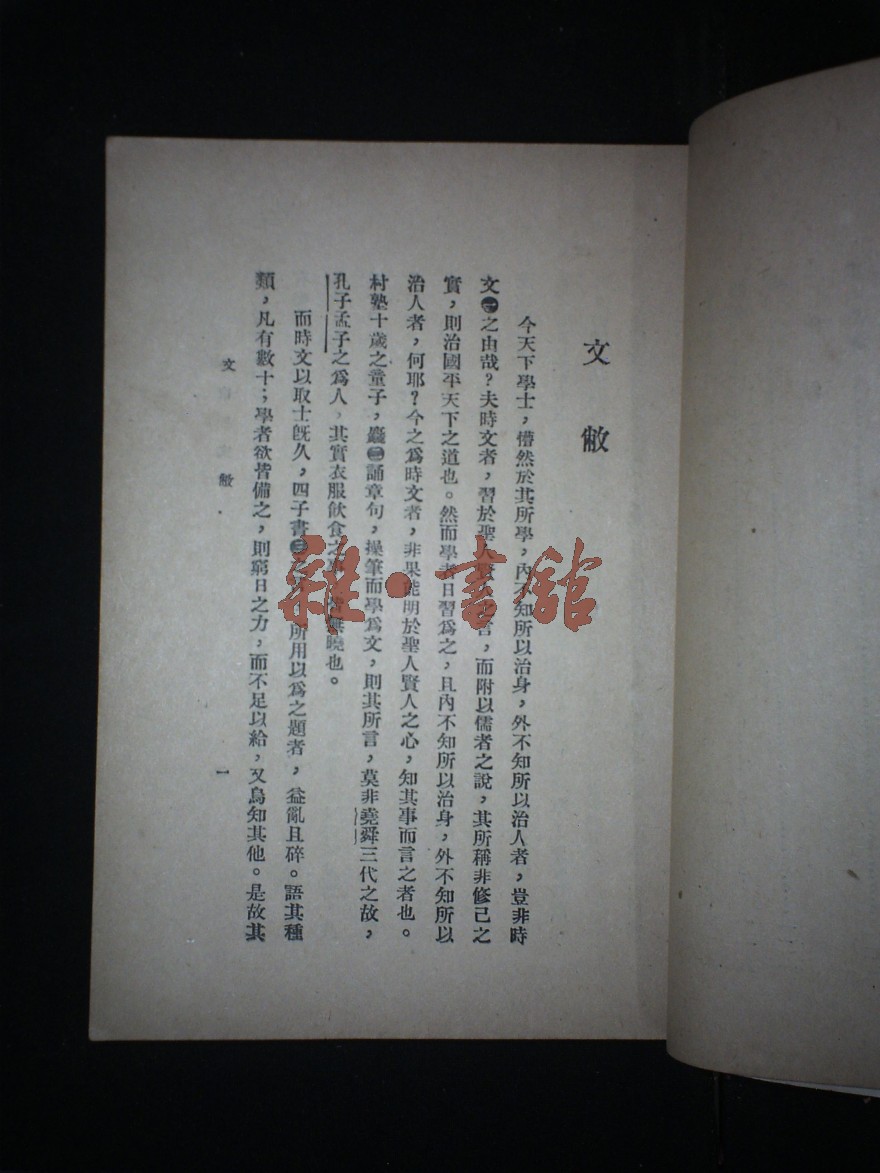 文敝
今天下學士，懵然於其所學，內不知所以治身，外不知所以治人者，豈非時
文㊀之由哉？夫時文者，習於聖人賢之言，而附以儒者之說，其所稱非修己之
實，則治國平天下之道也。然而學者日習爲之，且內不知所以治身，外不知所以
治人者，何耶？今之爲時文者，非果能明於聖人賢人之心，知其事而言之者也。
村塾十歲之童子，㊁誦章句，操筆而學爲文，則其所言，莫非堯舜三代之故，
孔子孟子之爲人，其實衣服飲食之無曉也。
而時文以取士旣久，四子書㊂所用以爲之題者，益亂且碎。語其種
類，凡有數十；學者欲皆備之，則窮日之力，而不足以給，又烏知其他。是故其
文敝
一
雜·書館